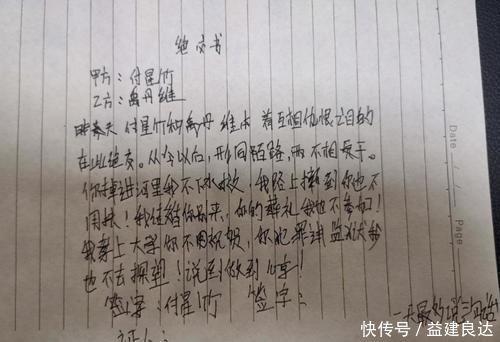 绝交书
甲方：付星竹
乙方：禹丹维
付星竹和禹丹维本着互相伤恨之目的
在此绝交。从今以后，形同陌路，两不相关于。
你掉进河里我不下水救，我路上撞到你也不
用扶！我结婚你别来，你的葬礼我也不参加！
我考上大学你不用祝贺，你犯罪进监狱我
也不去探望！说到做到
签字：付星竹 签字：
证人：
一天最多说三句话
Date
Page
快传号/益建良达